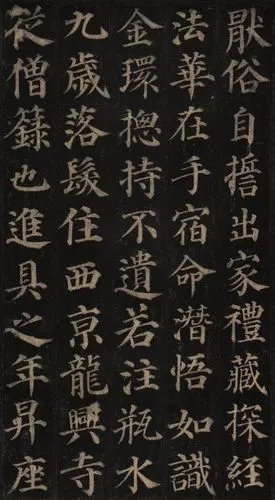 厭俗自誓出家禮藏探經
法華在手宿命潛悟如識
金環摠持不遺若注瓶水
九歲落髮住西京龍興寺
從僧籙也進具之年昇座